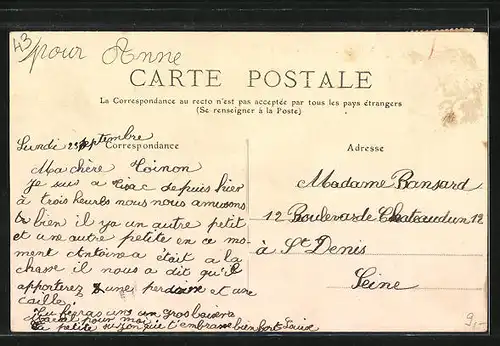 43
pour Anne
CARTE POSTALE
La Correspondance au recto n'est pas acceptée par tous les pays étrangers
(Se renseigner à la Poste)
Lundi 25 septembre
Correspondance
Ma chère Toinon
je sui a depuis hier
à trois heures nous nous amusons
bien il ya un autre petit
et une autre petite en ce mo-
ment Antoinea était a la
chasse il nous a dit qu'il
apporterez une perdrixe et une
cailles.
Tu feras un gros
pour moi
La petite qui t'embrasse bien fort Louise
Adresse
Madame Bansard
12 Boulevarde Chateaudun 12
à St Denis
Seine
9,-